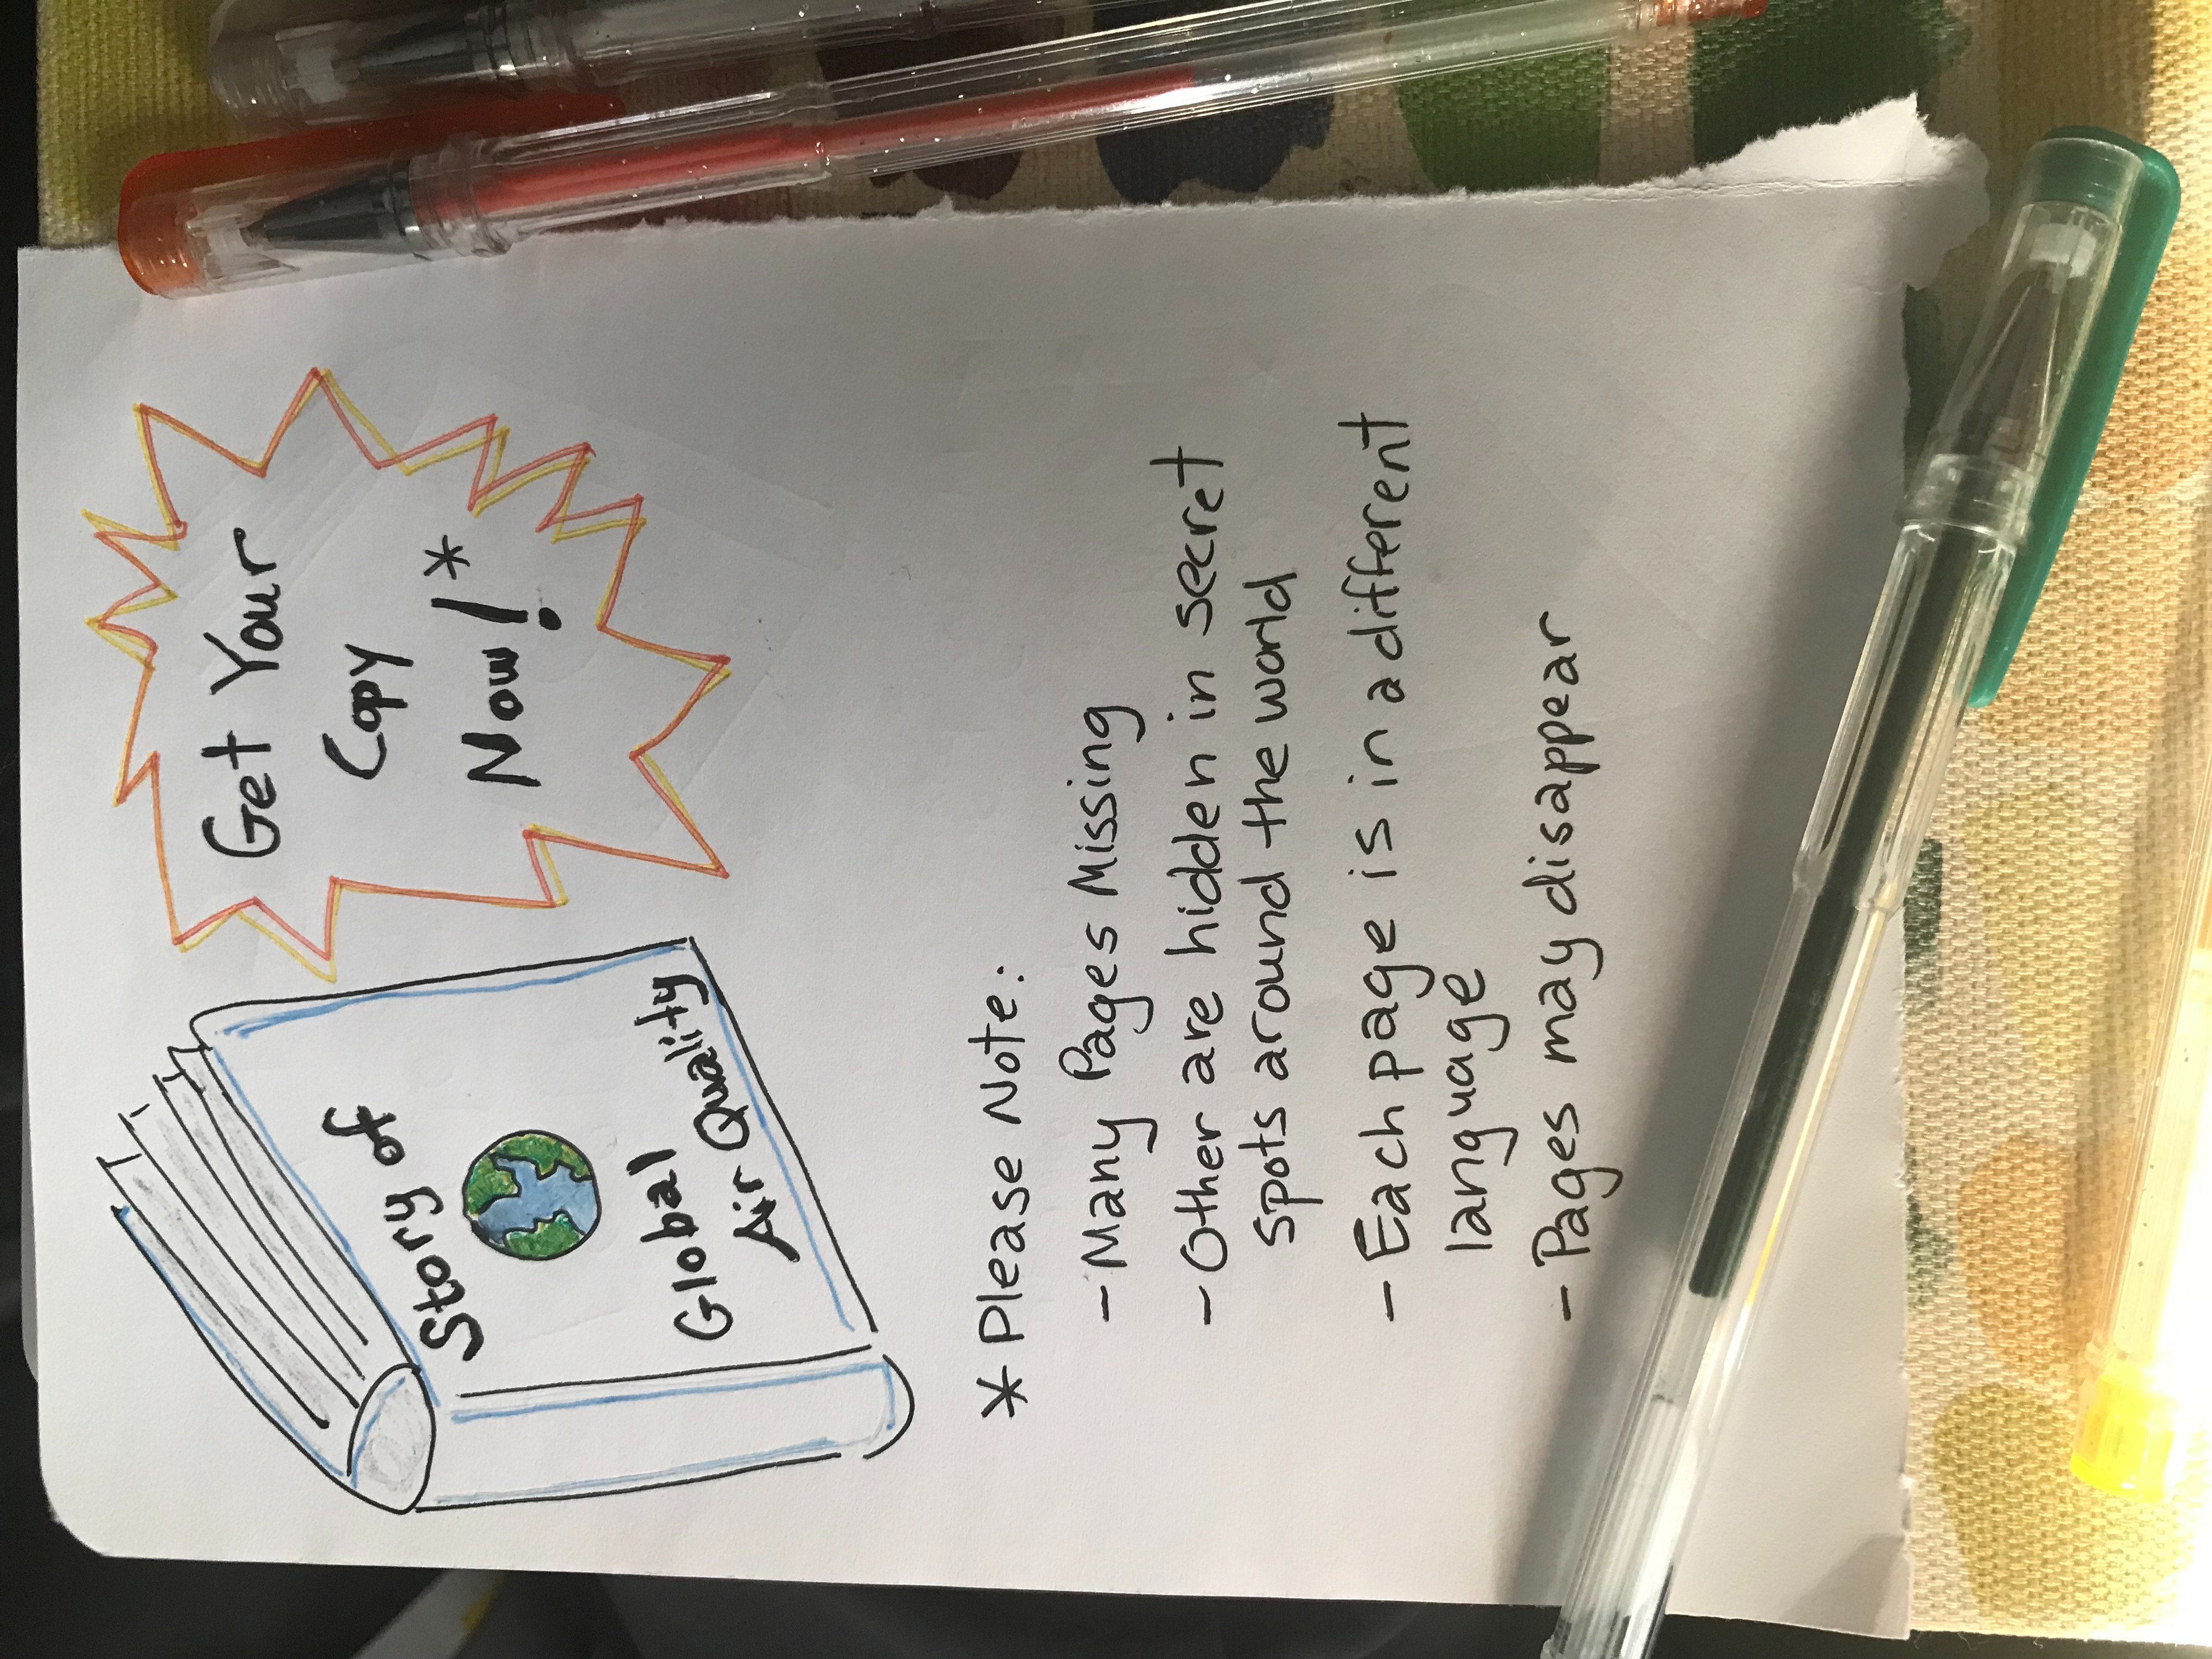 Story of
Global
Air Quality
Get Your
Copy
Now! *
* Please Note:
- Many Pages Missing
- Other are hidden in secret
spots around the world
- Each page is in a different
language
- Pages may disappear